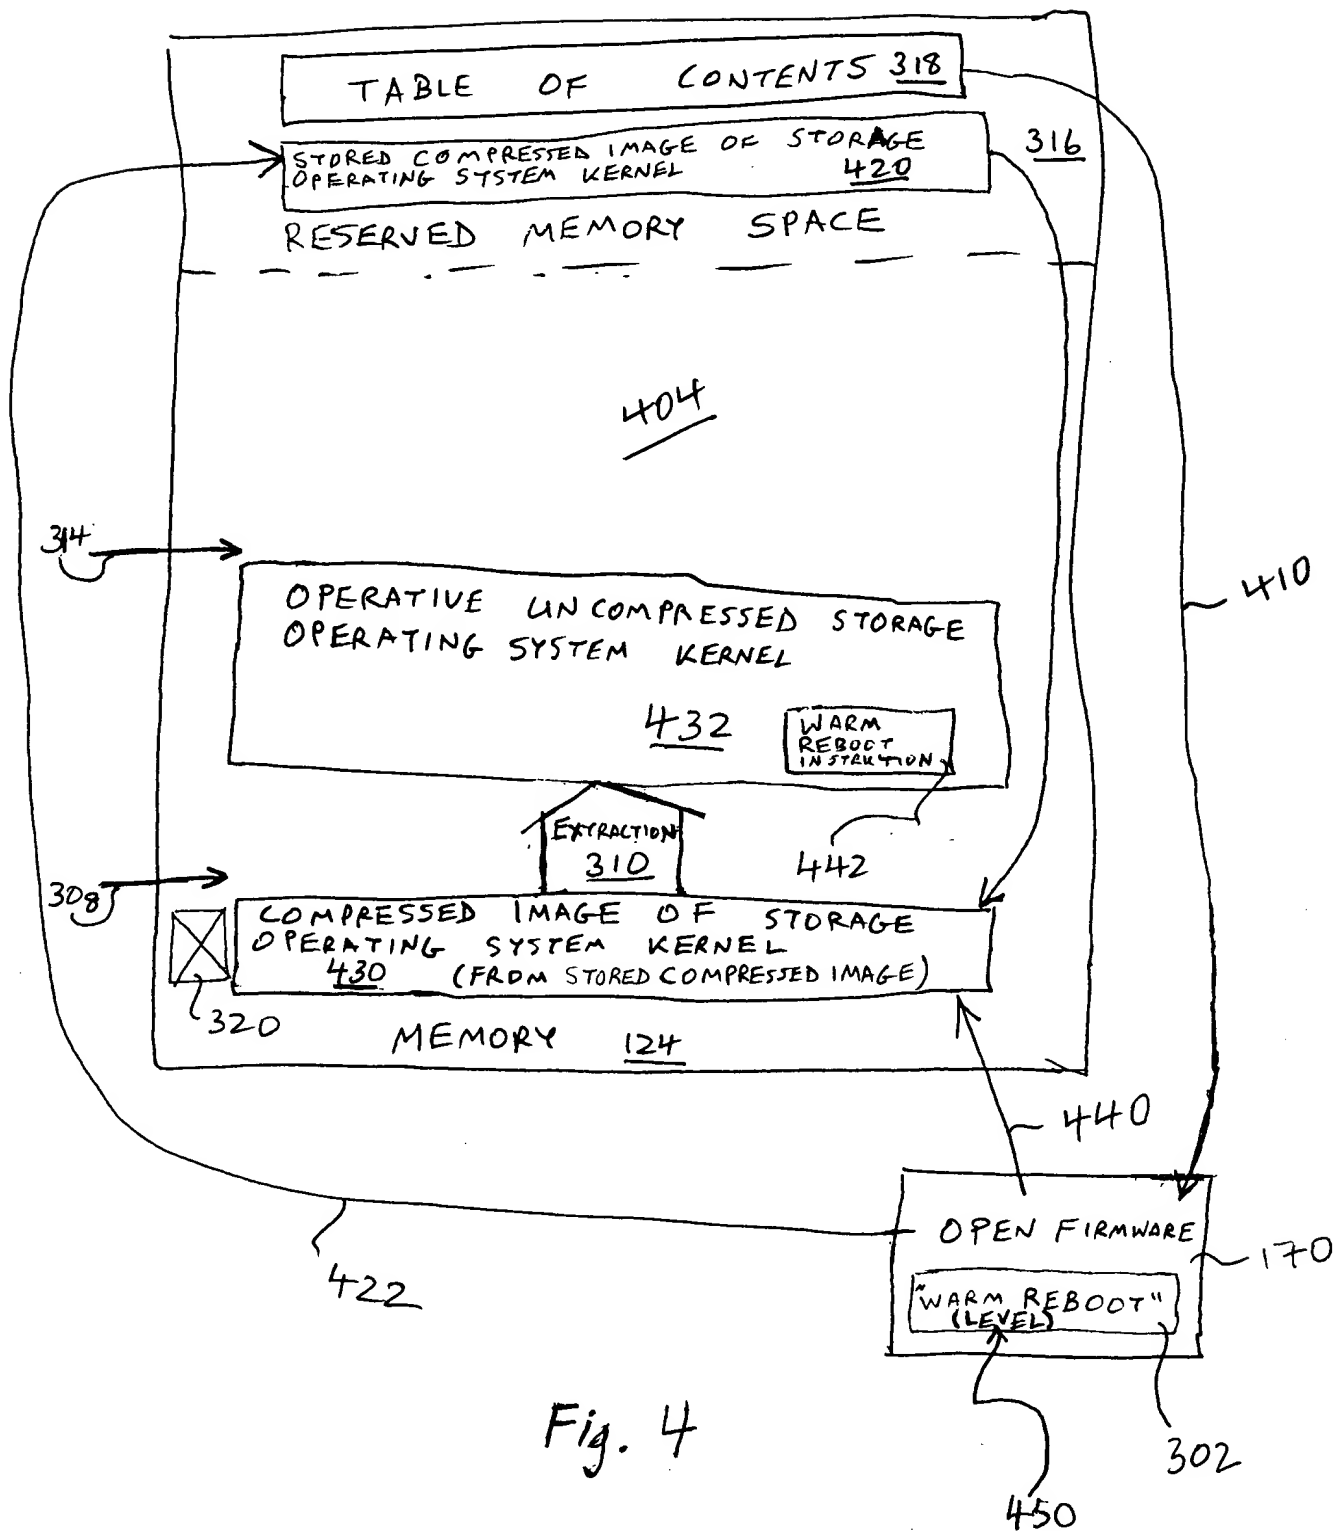 TABLE OF CONTENTS 318
STORED COMPRESSED IMAGE OF STORAGE
OPERATING SYSTEM KERNEL 420
316
RESERVED MEMORY SPACE
404
314
410
OPERATIVE UNCOMPRESSED STORAGE
OPERATING SYSTEM KERNEL
432
WARM
REBOOT
INSTRUCTION
442
EXTRACTION
310
308
COMPRESSED IMAGE OF STORAGE
OPERATING SYSTEM KERNEL
430 (FROM STORED COMPRESSED IMAGE)
320
MEMORY 124
440
OPEN FIRMWARE
170
"WARM REBOOT"
(LEVEL)
422
302
450
Fig. 4